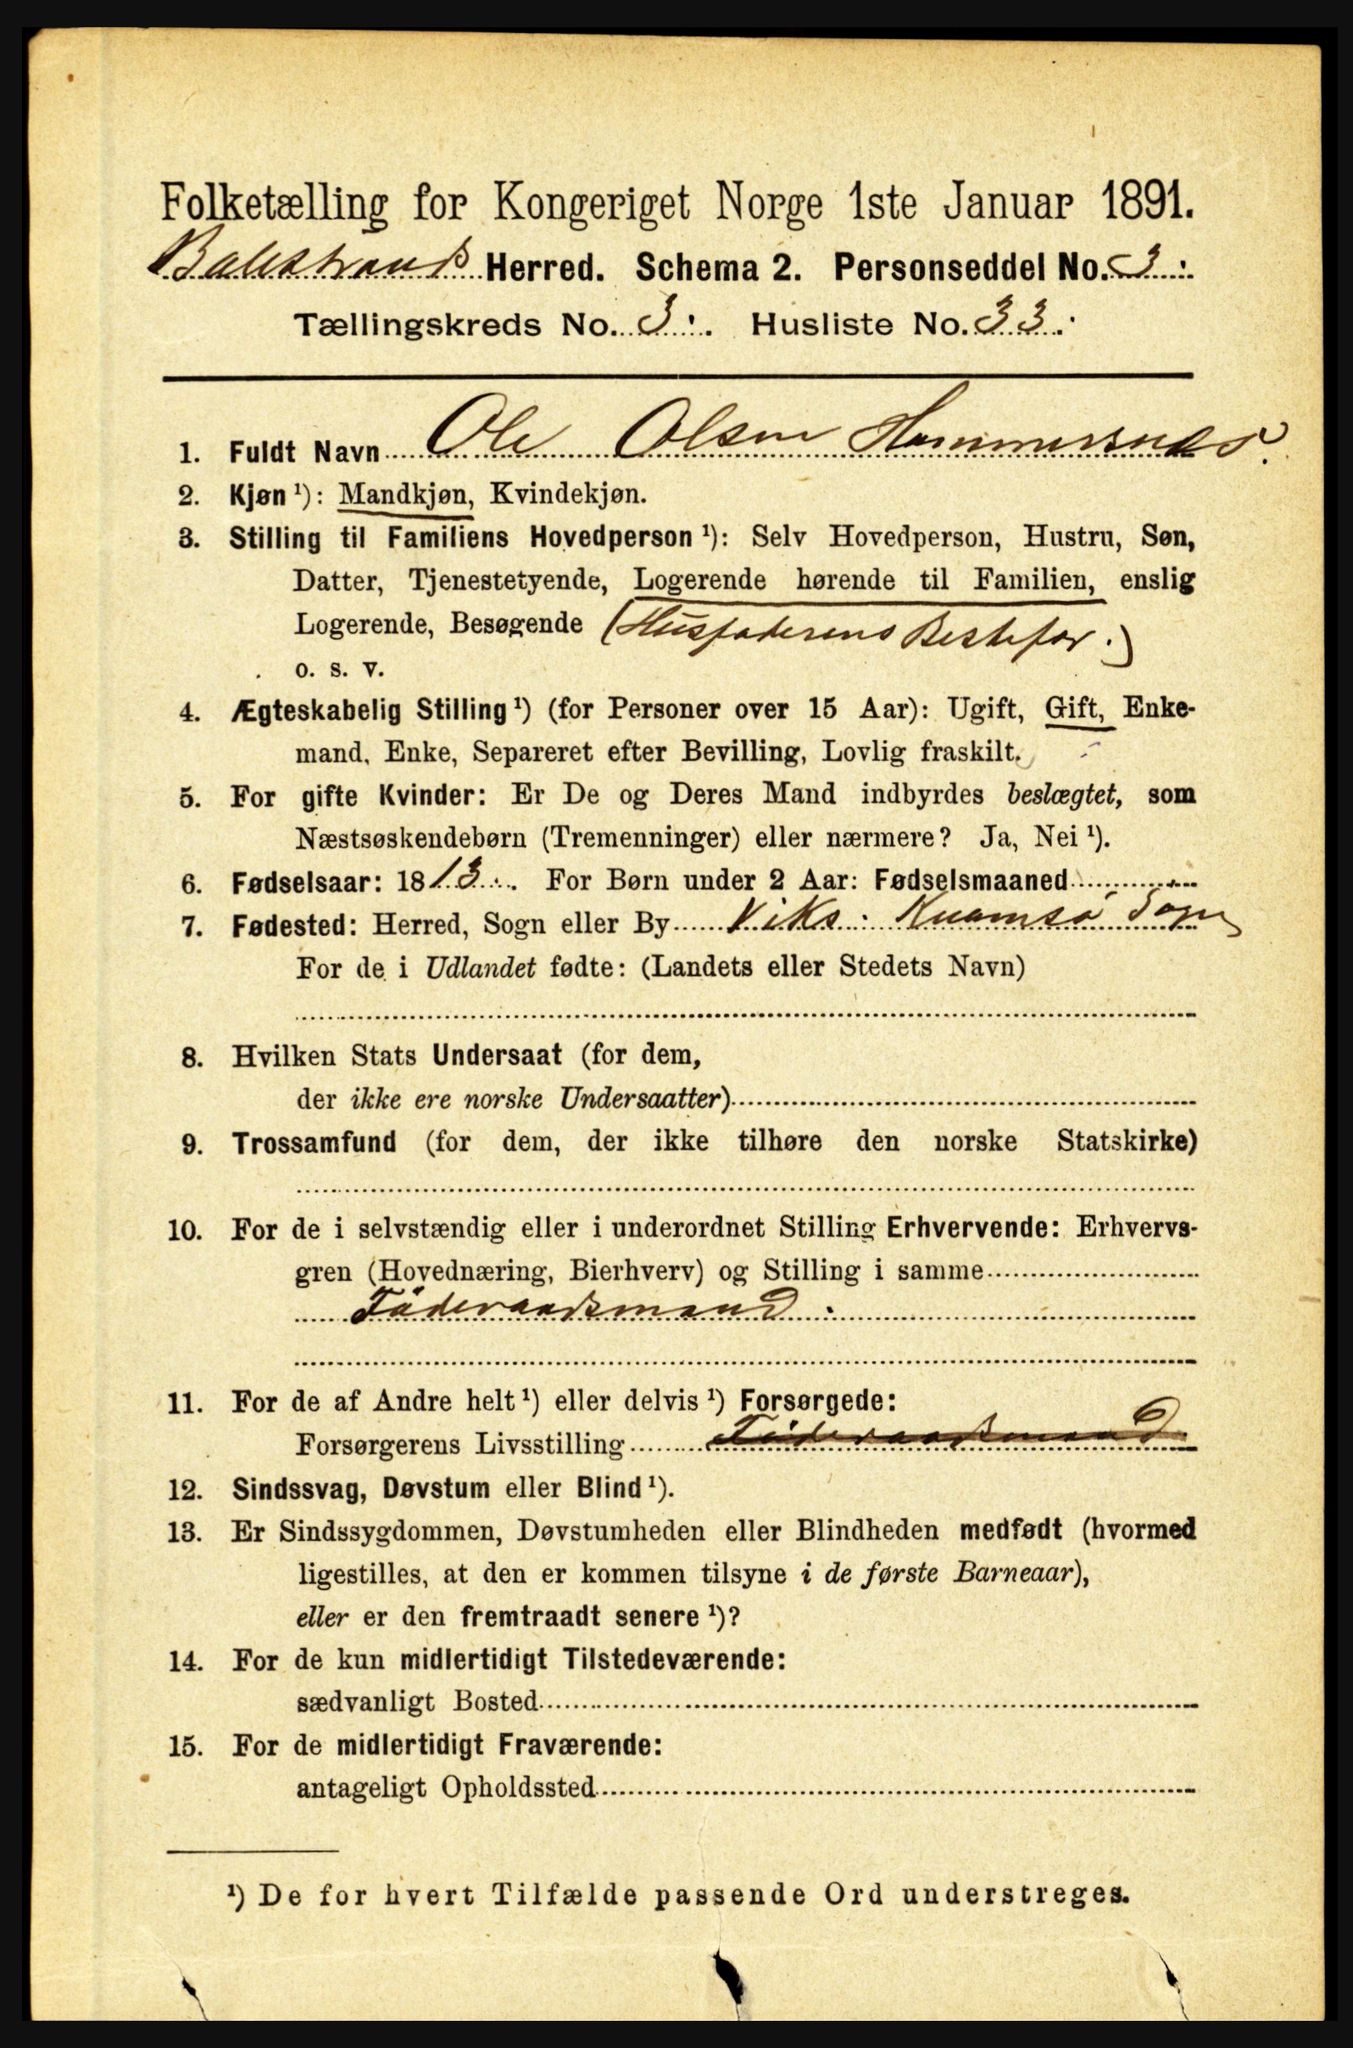 Folketælling for Kongeriget Norge 1ste Januar 1891.
Balestrand Herred. Schema 2. Personseddel No. 3.
Tællingskreds No. 3. Husliste No. 33.
1. Fuldt Navn Ole Olsen Hammersnæs.
2. Kjøn ¹): Mandkjøn, Kvindekjøn.
3. Stilling til Familiens Hovedperson ¹): Selv Hovedperson, Hustru, Søn,
Datter, Tjenestetyende, Logerende hørende til Familien, enslig
Logerende, Besøgende (Husfaderens Bestefar.)
o. s. v.
4. Ægteskabelig Stilling ¹) (for Personer over 15 Aar): Ugift, Gift, Enke-
mand, Enke, Separeret efter Bevilling, Lovlig fraskilt.
5. For gifte Kvinder: Er De og Deres Mand indbyrdes beslægtet, som
Næstsøskendebørn (Tremenninger) eller nærmere? Ja, Nei ¹).
6. Fødselsaar: 1813. For Børn under 2 Aar: Fødselsmaaned
7. Fødested: Herred, Sogn eller By Viks. Kvamsø Sogn
For de i Udlandet fødte: (Landets eller Stedets Navn)
8. Hvilken Stats Undersaat (for dem,
der ikke ere norske Undersaatter)
9. Trossamfund (for dem, der ikke tilhøre den norske Statskirke)
10. For de i selvstændig eller i underordnet Stilling Erhvervende: Erhvervs-
gren (Hovednæring, Bierhverv) og Stilling i samme
Föderaadsmand.
11. For de af Andre helt ¹) eller delvis ¹) Forsørgede:
Forsørgerens Livsstilling Föderaadsmand
12. Sindssvag, Døvstum eller Blind ¹).
13. Er Sindssygdommen, Døvstumheden eller Blindheden medfødt (hvormed
ligestilles, at den er kommen tilsyne i de første Barneaar),
eller er den fremtraadt senere ¹)?
14. For de kun midlertidigt Tilstedeværende:
sædvanligt Bosted
15. For de midlertidigt Fraværende:
antageligt Opholdssted
¹) De for hvert Tilfælde passende Ord understreges.